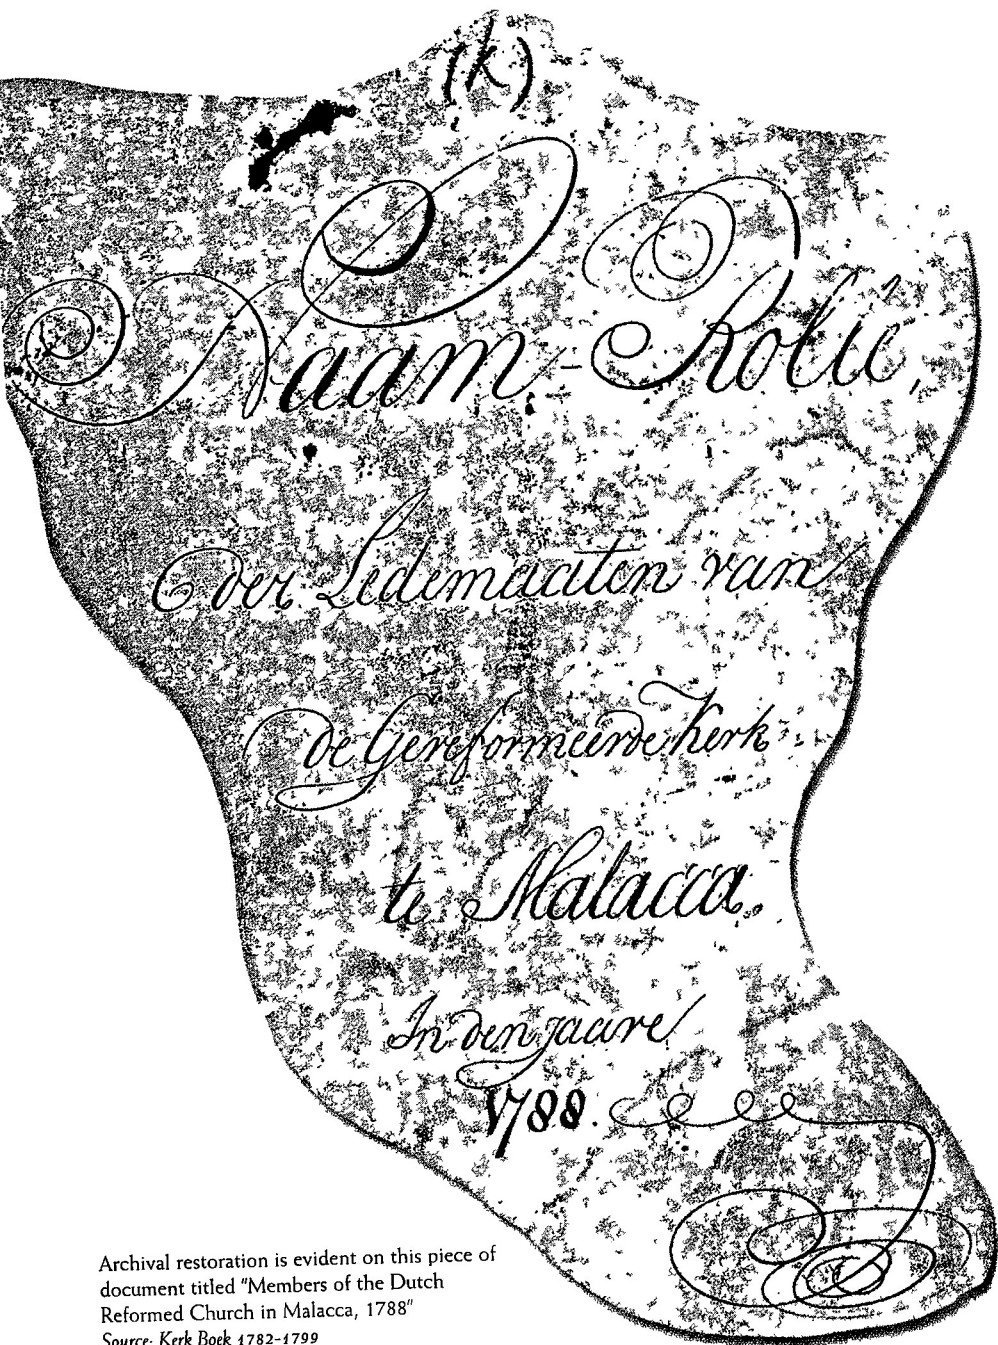 (k)
Naam-Rolle,
der Ledemaaten van
de Gereformeerde Kerk
te Malacca.
In den jaare
1788.
Archival restoration is evident on this piece of
document titled "Members of the Dutch
Reformed Church in Malacca, 1788"
Source: Kerk Boek 1782-1799